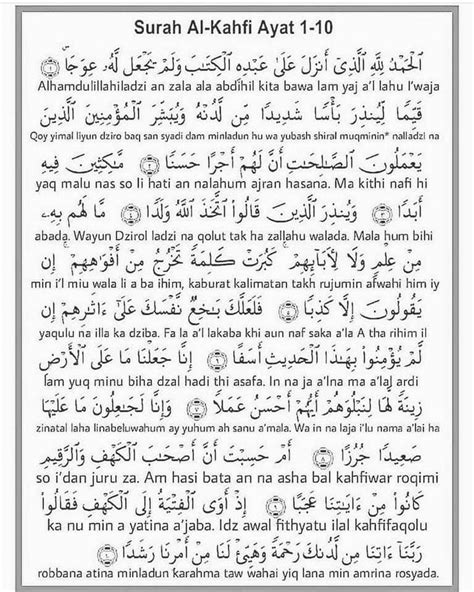 Surah Al-Kahfi Ayat 1-10
الْحَمْدُ لِلَّهِ الَّذِىٓ أَنزَلَ عَلَىٰ عَبْدِهِ الْكِتَـٰبَ وَلَمْ يَجْعَل لَّهُۥ عِوَجَا ۜ ١
Alhamdulillahiladzi an zala ala abdihil kita bawa lam yaj a'l lahu I'waja
قَيِّمًا لِّيُنذِرَ بَأْسًا شَدِيدًا مِّن لَّدُنْهُ وَيُبَشِّرَ الْمُؤْمِنِينَ الَّذِينَ
Qoy yimal liyun dziro baq san syadi dam minladun hu wa yubash shiral muqminin* nalladzi na
يَعْمَلُونَ الصَّـٰلِحَـٰتِ أَنَّ لَهُمْ أَجْرًا حَسَنًا ٢ مَّـٰكِثِينَ فِيهِ
yaq malu nas so li hati an nalahum ajran hasana. Ma kithi nafi hi
أَبَدًا ٣ وَيُنذِرَ الَّذِينَ قَالُوا۟ اتَّخَذَ اللَّهُ وَلَدًا ٤ مَّا لَهُم بِهِۦ
abada. Wayun Dzirol ladzi na qolut tak ha zallahu walada. Mala hum bihi
مِنْ عِلْمٍ وَلَا لِـَٔابَآئِهِمْ كَبُرَتْ كَلِمَةً تَخْرُجُ مِنْ أَفْوَٰهِهِمْ إِن
min i'l miu wala li a ba ihim, kaburat kalimatan takh rujumin afwahi him iy
يَقُولُونَ إِلَّا كَذِبًا ٥ فَلَعَلَّكَ بَـٰخِعٌ نَّفْسَكَ عَلَىٰٓ ءَاثَـٰرِهِمْ إِن
yaqulu na illa ka dziba. Fa la a'l lakaba khi aun naf saka a'la A tha rihim il
لَّمْ يُؤْمِنُوا۟ بِهَـٰذَا الْحَدِيثِ أَسَفًا ٦ إِنَّا جَعَلْنَا مَا عَلَى الْأَرْضِ
lam yuq minu biha dzal hadi thi asafa. In na ja a'lna ma a'laj ardi
زِينَةً لَّهَا لِنَبْلُوَهُمْ أَيُّهُمْ أَحْسَنُ عَمَلًا ٧ وَإِنَّا لَجَـٰعِلُونَ مَا عَلَيْهَا
zinatal laha linabeluwahum ay yuhum ah sanu a'mala. Wa in na laja i'lu nama a'lai ha
صَعِيدًا جُرُزًا ٨ أَمْ حَسِبْتَ أَنَّ أَصْحَـٰبَ الْكَهْفِ وَالرَّقِيمِ
so i'dan juru za. Am hasi bata an na asha bal kahfiwar roqimi
كَانُوا۟ مِنْ ءَايَـٰتِنَا عَجَبًا ٩ إِذْ أَوَى الْفِتْيَةُ إِلَى الْكَهْفِ فَقَالُوا۟
ka nu min a yatina a'jaba. Idz awal fithyatu ilal kahfifaqolu
رَبَّنَآ ءَاتِنَا مِن لَّدُنكَ رَحْمَةً وَهَيِّئْ لَنَا مِنْ أَمْرِنَا رَشَدًا ١٠
robbana atina minladun karahma taw wahai yiq lana min amrina rosyada.